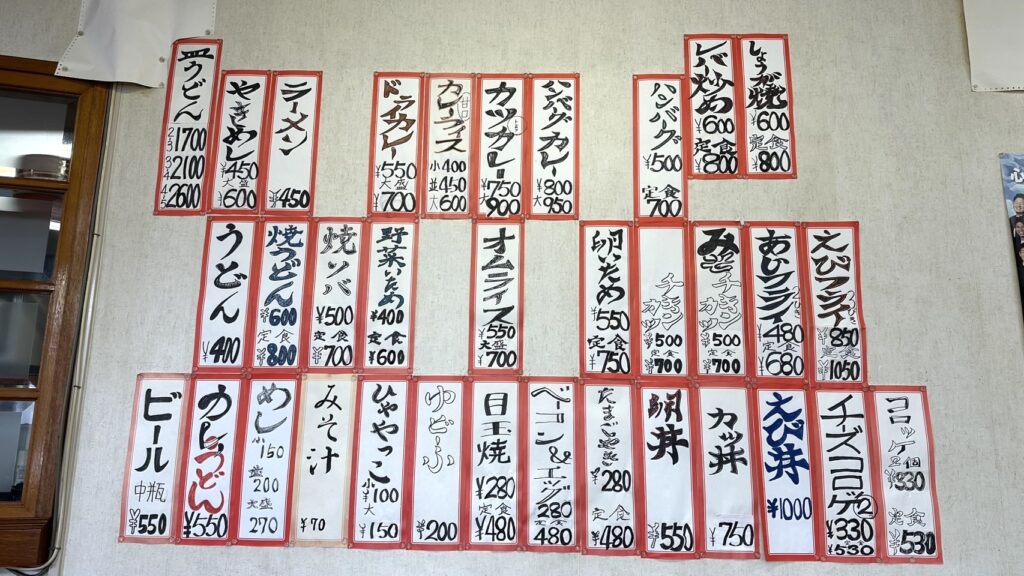 皿うどん
2〜3 1700
3〜4 2100
4〜5 2600
やきめし
¥450
大盛
¥600
ラーメン
¥450
ドライカレー
¥550
大盛
¥700
カレーライス
甘口
小 400
並 450
大 600
カツカレー
¥750
大 900
ハンバーグカレー
¥800
大 950
ハンバーグ
¥500
定食
700
レバー炒め
¥600
定食
¥800
しょうが焼
¥600
定食
¥800
うどん
¥400
焼うどん
¥600
定食
¥800
焼ソバ
¥500
定食
¥700
野菜いため
¥400
定食
¥600
オムライス
¥550
大盛
¥700
卵いため
¥550
定食
¥750
チキンカツ
¥500
定食
¥700
みそチキンカツ
¥500
定食
¥700
あじフライ
¥480
定食
¥680
えびフライ
¥850
定食
¥1050
ビール
中瓶
¥550
カレーうどん
¥550
めし
小 150
並 200
大盛 270
みそ汁
¥70
ひややっこ
小 ¥100
大 ¥150
ゆどーふ
¥200
目玉焼
¥280
定食
¥480
ベーコン&エッグ
280
定食
480
たまごやき
¥280
定食
¥480
卵丼
¥550
カツ丼
¥750
えび丼
¥1000
チーズコロッケ②
¥330
定食
¥530
コロッケ
2個
¥330
定食
¥530
心